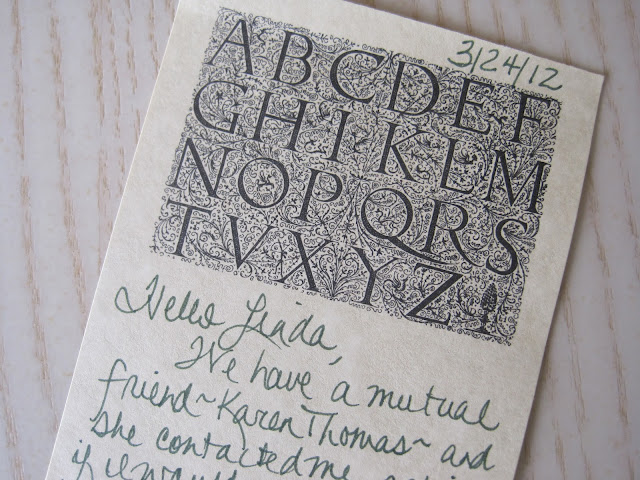 3/24/12
ABCDEF
GHIKLM
NOPQRS
TVXYZ
Hello Linda,
We have a mutual
friend~Karen Thomas~ and
she contacted me
if I would